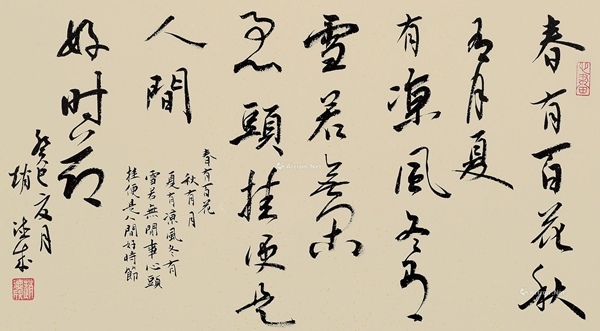 春有百花秋
有月夏
有凉風冬有
雪若無閑
事心頭挂便是
人間
好时節
春有百花
秋有月
夏有凉風冬有
雪若無閒事心頭
挂便是人間好時節
癸巳夏月